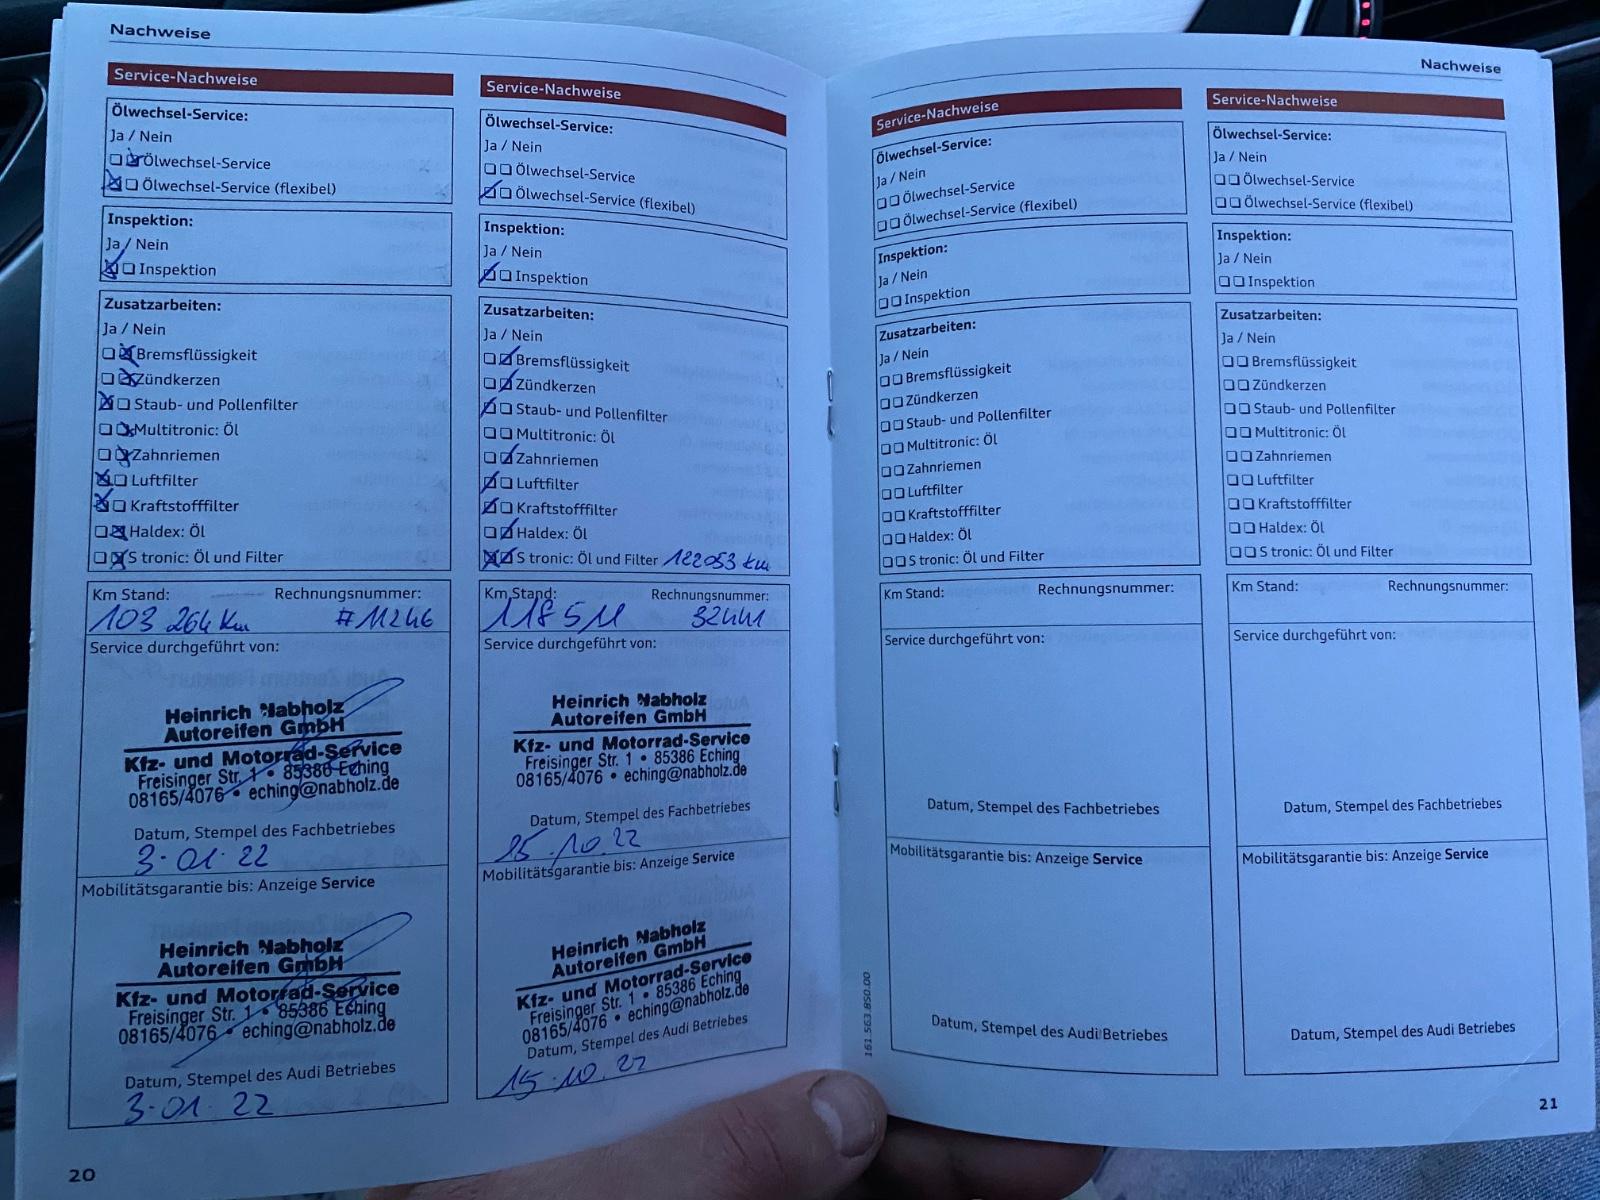 Nachweise
Service-Nachweise
Ölwechsel-Service:
Ja / Nein
Ölwechsel-Service
Ölwechsel-Service (flexibel)
Inspektion:
Ja / Nein
Inspektion
Zusatzarbeiten:
Ja / Nein
Bremsflüssigkeit
Zündkerzen
Staub- und Pollenfilter
Multitronic: Öl
Zahnriemen
Luftfilter
Kraftstofffilter
Haldex: Öl
S tronic: Öl und Filter
Km Stand: Rechnungsnummer:
103 264 Km #11246
Service durchgeführt von:
Heinrich Nabholz
Autoreifen GmbH
Kfz- und Motorrad-Service
Freisinger Str. 1 • 85386 Eching
08165/4076 • eching@nabholz.de
Datum, Stempel des Fachbetriebes
3-01-22
Mobilitätsgarantie bis: Anzeige Service
Heinrich Nabholz
Autoreifen GmbH
Kfz- und Motorrad-Service
Freisinger Str. 1 • 85386 Eching
08165/4076 • eching@nabholz.de
Datum, Stempel des Audi Betriebes
3-01-22
20
Service-Nachweise
Ölwechsel-Service:
Ja / Nein
Ölwechsel-Service
Ölwechsel-Service (flexibel)
Inspektion:
Ja / Nein
Inspektion
Zusatzarbeiten:
Ja / Nein
Bremsflüssigkeit
Zündkerzen
Staub- und Pollenfilter
Multitronic: Öl
Zahnriemen
Luftfilter
Kraftstofffilter
Haldex: Öl
S tronic: Öl und Filter 122053 km
Km Stand: Rechnungsnummer:
118 511 32441
Service durchgeführt von:
Heinrich Nabholz
Autoreifen GmbH
Kfz- und Motorrad-Service
Freisinger Str. 1 • 85386 Eching
08165/4076 • eching@nabholz.de
Datum, Stempel des Fachbetriebes
.10.22
Mobilitätsgarantie bis: Anzeige Service
Heinrich Nabholz
Autoreifen GmbH
Kfz- und Motorrad-Service
Freisinger Str. 1 • 85386 Eching
08165/4076 • eching@nabholz.de
Datum, Stempel des Audi Betriebes
15.10.22
Nachweise
Service-Nachweise
Ölwechsel-Service:
Ja / Nein
Ölwechsel-Service
Ölwechsel-Service (flexibel)
Inspektion:
Ja / Nein
Inspektion
Zusatzarbeiten:
Ja / Nein
Bremsflüssigkeit
Zündkerzen
Staub- und Pollenfilter
Multitronic: Öl
Zahnriemen
Luftfilter
Kraftstofffilter
Haldex: Öl
S tronic: Öl und Filter
Km Stand: Rechnungsnummer:
Service durchgeführt von:
Datum, Stempel des Fachbetriebes
Mobilitätsgarantie bis: Anzeige Service
Datum, Stempel des Audi Betriebes
161.563.850.00
Service-Nachweise
Ölwechsel-Service:
Ja / Nein
Ölwechsel-Service
Ölwechsel-Service (flexibel)
Inspektion:
Ja / Nein
Inspektion
Zusatzarbeiten:
Ja / Nein
Bremsflüssigkeit
Zündkerzen
Staub- und Pollenfilter
Multitronic: Öl
Zahnriemen
Luftfilter
Kraftstofffilter
Haldex: Öl
S tronic: Öl und Filter
Km Stand: Rechnungsnummer:
Service durchgeführt von:
Datum, Stempel des Fachbetriebes
Mobilitätsgarantie bis: Anzeige Service
Datum, Stempel des Audi Betriebes
21